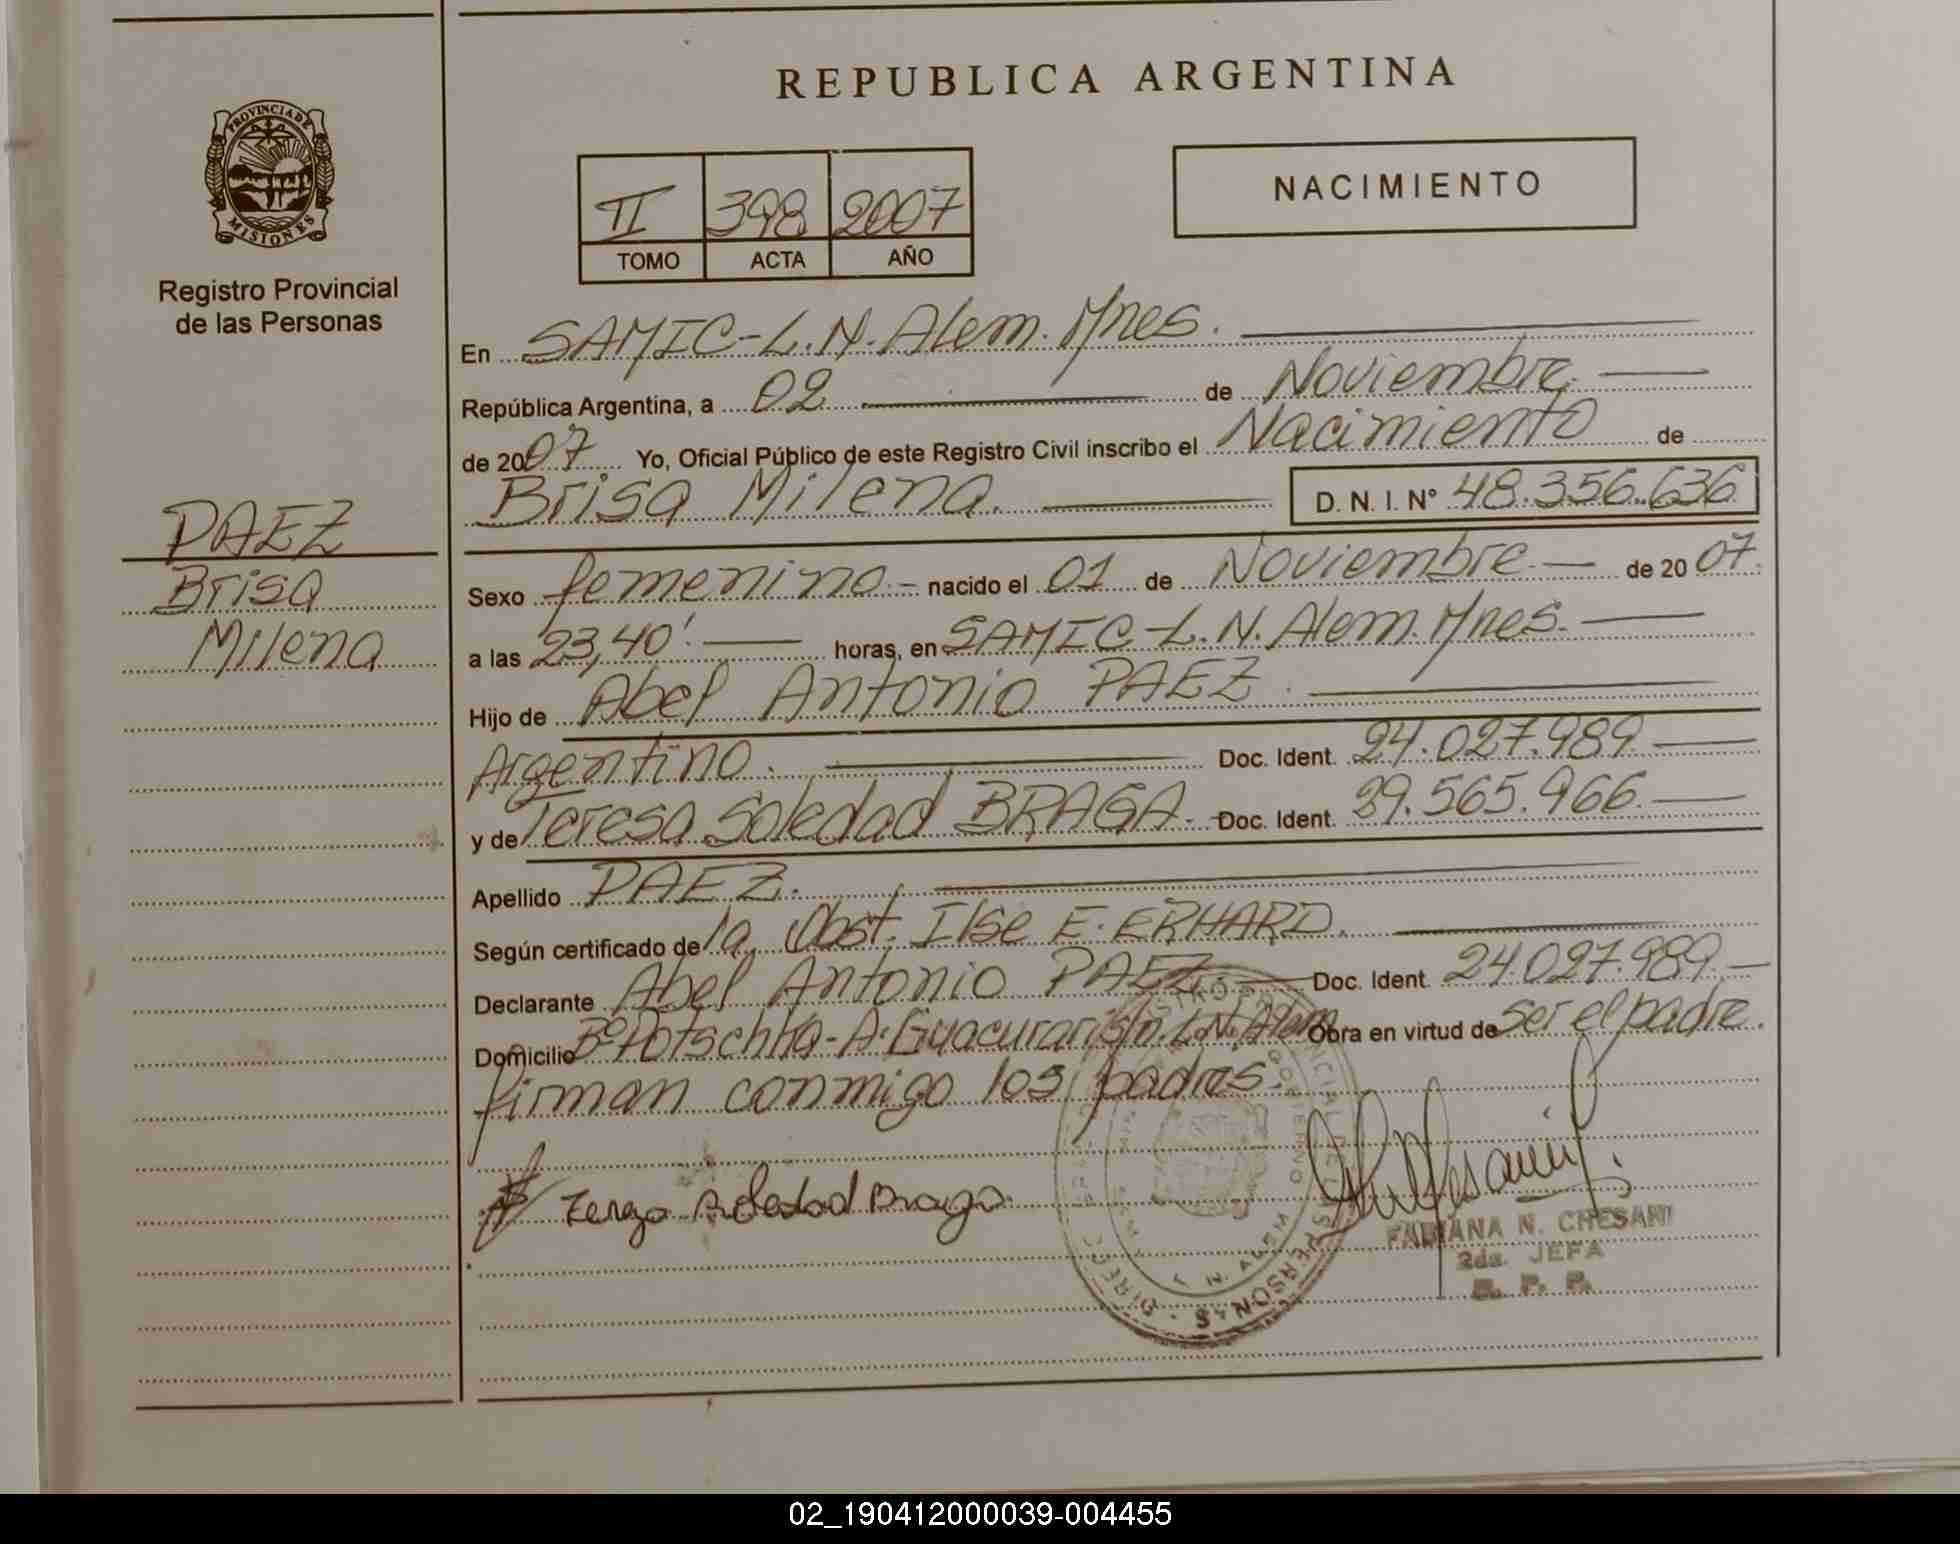 REPUBLICA ARGENTINA
PROVINCIA DE
MISIONES
Registro Provincial
de las Personas
PAEZ
Brisa
Milena
II 398 2007
TOMO ACTA AÑO
NACIMIENTO
En SAMIC-L.N.Alem.Mnes.
República Argentina, a 02 de Noviembre.
de 2007 Yo, Oficial Público de este Registro Civil inscribo el Nacimiento de
Brisa Milena. D. N. I. N° 48.356.636
Sexo femenino.- nacido el 01 de Noviembre.- de 2007.
a las 23,40'. horas, en SAMIC-L.N.Alem.Mnes.
Hijo de Abel Antonio PAEZ.
Argentino. Doc. Ident. 24.027.989.
y de Teresa Soledad BRAGA.- Doc. Ident. 39.565.966.
Apellido PAEZ.
Según certificado de la Obst. Ilse E. ERHARD.
Declarante Abel Antonio PAEZ.- Doc. Ident. 24.027.989.-
Domicilio B° Potschka-A.Guacurari s/n.L.N.Alem Obra en virtud de ser el padre.
firman conmigo los padres.
Soledad Braga
FABIANA N. CHESANI
2da. JEFA
R. P. P.
02_190412000039-004455